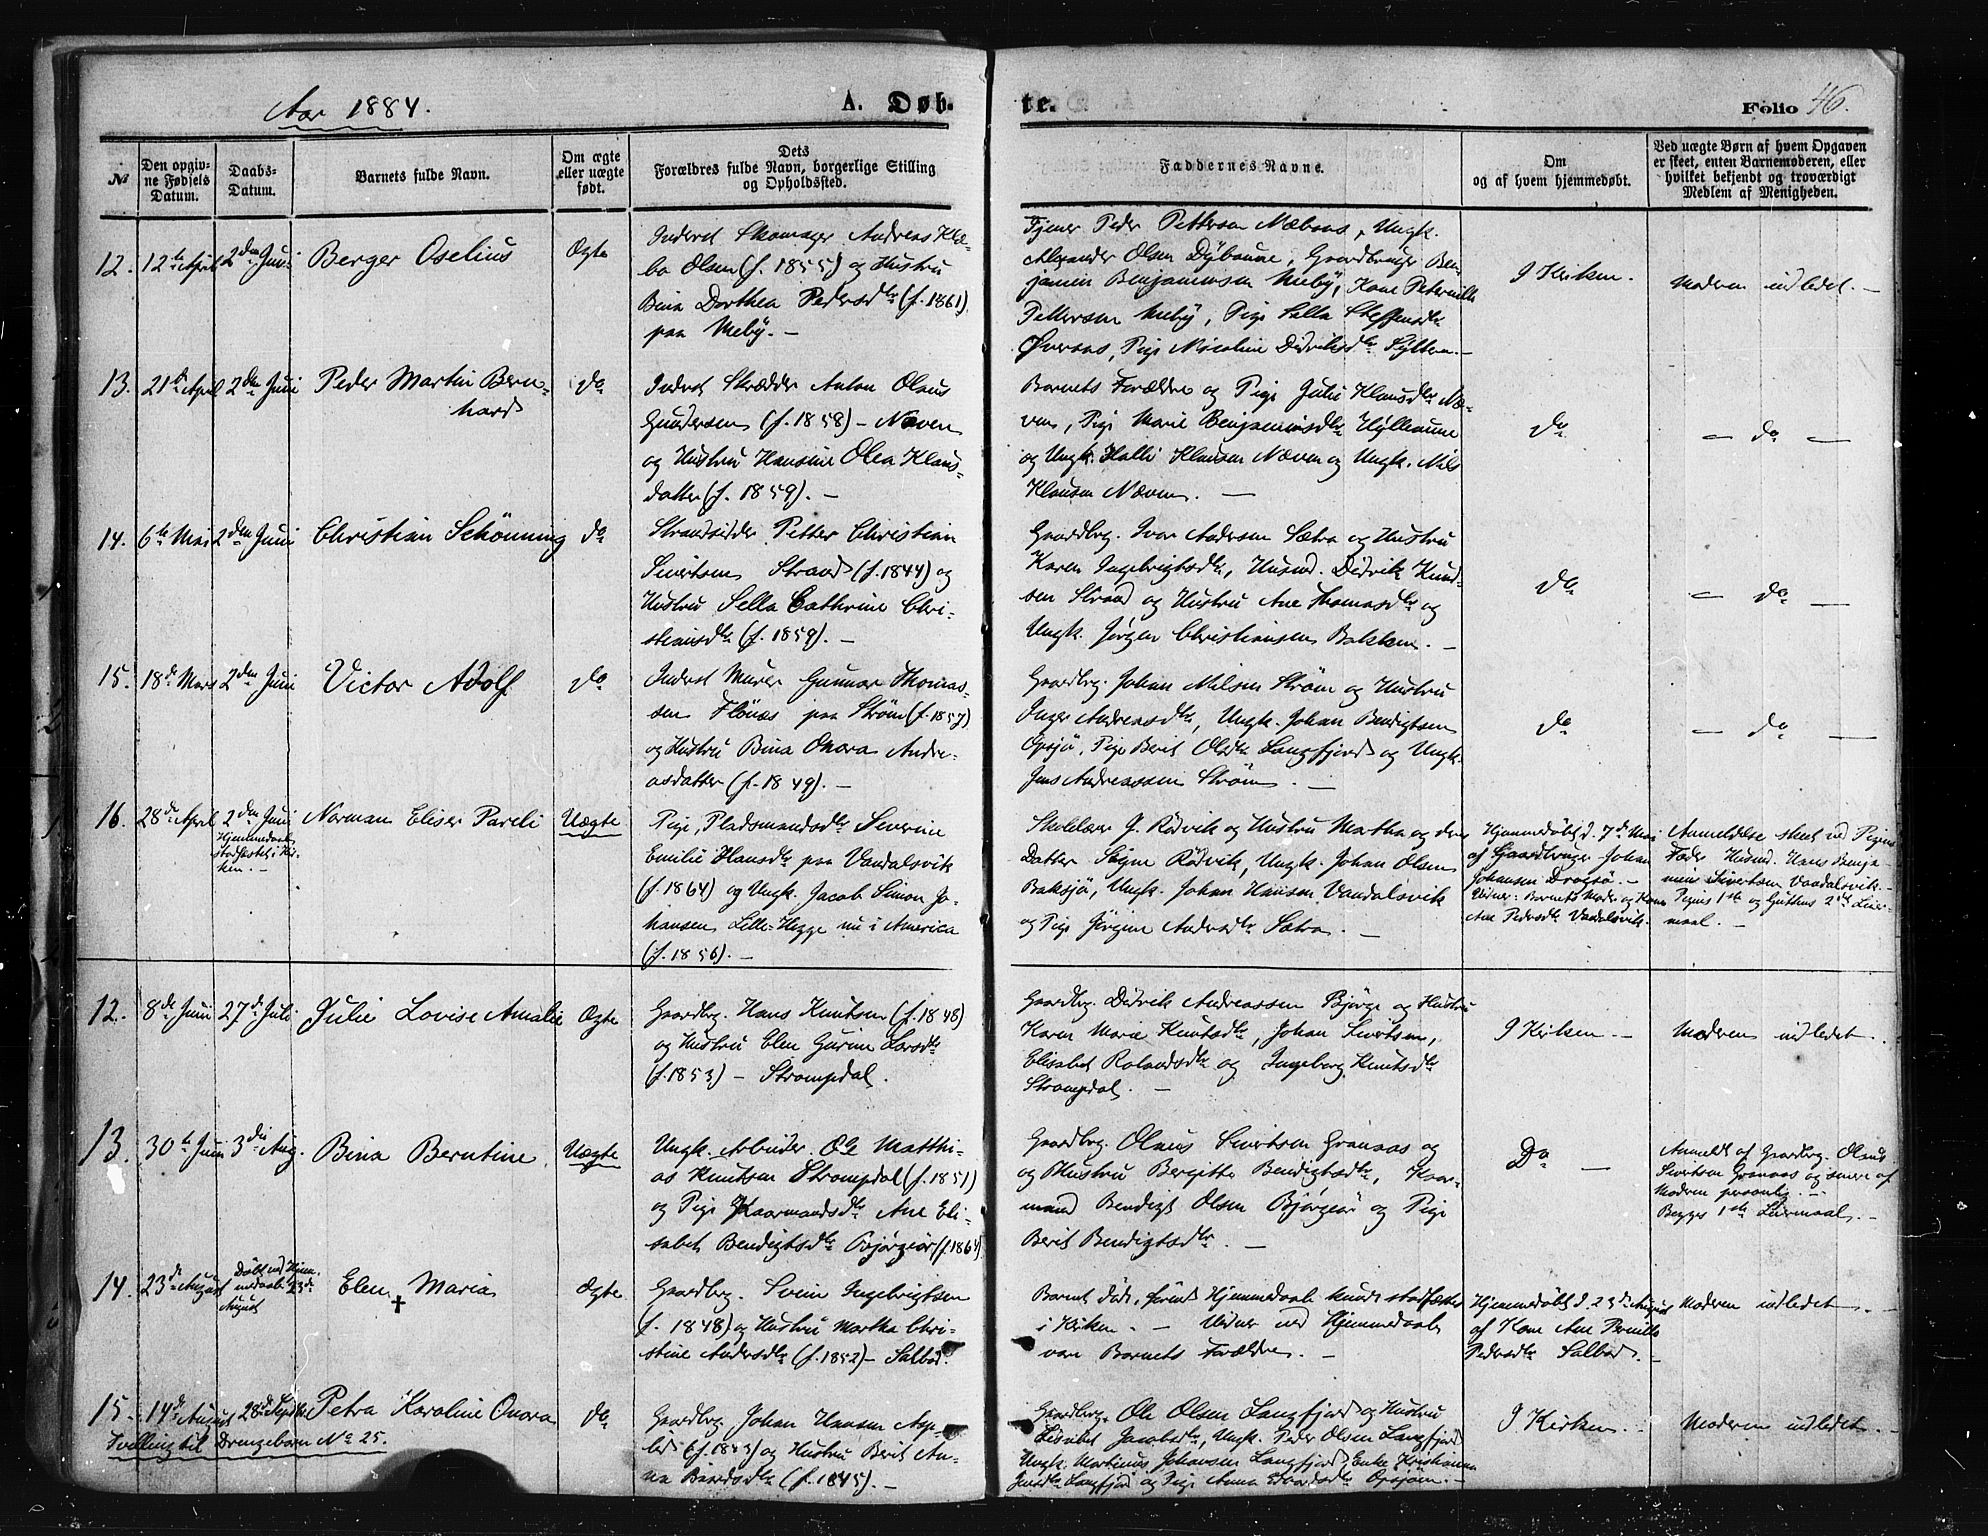 Aar 1884.
A. Døb-
te.
Folio 46.
№
Den opgiv-
ne Fødsels
Datum.
Daabs-
Datum.
Barnets fulde Navn.
Om ægte
eller uægte
født.
Dets
Forældres fulde Navn, borgerlige Stilling
og Opholdssted.
Faddernes Navne.
Om
og af hvem hjemmedøbt.
Ved uægte Børn af hvem Opgaven
er skeet, enten Barnemoderen, eller
hvilket bekjendt og troværdigt
Medlem af Menigheden.
12.
12te April
2den Juni
Berger Oselius
Ægte
Inderst Skomager Andreas Klæ-
bo Olsen (f. 1855) og Hustru
Bina Dorthea Pedersdtr (f. 1861)
paa Meby. —
Tjener Peder Pettersen Næbaas, Ungk.
Alexander Olsen Dybaune, Gaardbruger Ben-
jamin Benjaminsen Meby, Kone Peternille
Pettersen Meby, Pige Salla Steffensdtr
Øveraas, Pige Nicoline Didriksdtr Sylten. —
I Kirken.
Moderen indledet. —
13.
21de April
2den Juni
Peder Martin Bern-
hard
do
Inderst Skrædder Anton Olaus
Gundersen (f. 1858) — Næven
og Hustru Hansine Olea Klaus-
datter (f. 1859). —
Barnets Forældre og Pige Julie Klausdtr Næ-
ven, Pige Marie Benjaminsdtr Hylleaune
og Ungk. Halli Klausen Næven og Ungk. Nils
Klausen Næven. —
do
— do —
14.
6te Mai
2den Juni
Christian Schönning
do
Strandsidder Petter Christian
Sivertsen Strand (f. 1844) og
Hustru Sella Cathrine Chri-
stiansdtr (f. 1859). —
Gaardbrg. Ivar Andersen Sætra og Hustru
Karen Ingebrigtsdtr, Husmd. Didrik Knud-
sen Strand og Hustru Ane Thomasdtr og
Ungk. Jørgen Christiansen Bakken. —
do
— do —
15.
18de Mars
2den Juni
Victor Adolf
do
Inderst Murer Gunnar Thomas-
sen Flönes paa Ström (f. 1857)
og Hustru Bina Onora Andre-
asdatter (f. 1849). —
Gaardbrg. Johan Nilsen Ström og Hustru
Inger Andreasdtr, Ungk. Johan Bendigtsen
Opsjø, Pige Berit Olsdtr Langfjord og Ungk.
Jens Andreassen Strøm. —
do
— do —
16.
28de April
2den Juni
Hjemmedaaben
stadfæstet i Kir-
ken. —
Norman Eliser Pareli
Uægte
Pige, Pladsmandsdtr Severine
Emilie Hansdtr paa Vandalsvik
(f. 1864) og Ungk. Jacob Simon Jo-
hansen Lille-Hegge nu i America
(f. 1856). —
Skolelærer G. Rødvik og Hustru Martha og deres
Datter Signe Rødvik, Ungk. Johan Olsen
Baksjø, Ungk. Johan Hansen Vandalsvik
og Pige Jørgine Andersdtr Sætra. —
Hjemmedøbt d. 7de Mai
af Gaardbruger Johan
Johansen Dragsø. —
Vidner: Barnets Moder og Kone
Ane Pedersdtr Vandalsvik.
Anmeldelse skeet ved Pigens
Fader Husmd. Hans Benja-
min Sivertsen Vandalsvik. —
Pigens 1ste og Guttens 2det Leier-
maal. —
12.
8de Juni
27de Juli
Julie Lovise Amalie
Ægte
Gaardbrg. Hans Knutsen (f. 1848)
og Hustru Elen Gurine Larsdtr
(f. 1853) — Strompdal.
Gaardbrg. Didrik Andreassen Bjørge og Hustru
Karen Marie Knutsdtr, Johan Sivertsen,
Elisabet Rolandsdtr og Ingeborg Knutsdtr
Strompdal. —
I Kirken —
Moderen indledet.
13.
30te Juni
3die Aug.
Bina Berntine
Uægte
Ungk. Arbeider Ole Matthi-
as Knutsen Strompdal (f. 1851)
og Pige Kaarmandsdtr Ane Eli-
sabet Bendigtsdtr Bjørgeiør (f. 1864)
Gaardbrg. Olaus Sivertsen Granaas og
og Hustru Bergitte Bendigtsdtr, Kaar-
mand Bendigt Olsen Bjørgeiør og Pige
Berit Bendigtsdtr. —
Do —
Anmeldt af Gaardbrg. Olaus
Sivertsen Granaas og senere af
Moderen personlig. —
Begges 1ste Leiermaal. —
14.
23de August
Døbt ved Hjem-
medaab 23de
August
Elen Maria
†
Ægte
Gaardbrg. Svein Ingebrigtsen
(f. 1848) og Hustru Martha Chri-
stine Andersdtr (f. 1852) — Salbod.
Barnet døde, førend Hjemmedaaben kunde stadfæstes
i Kirken. — Vidner ved Hjemmedaaben
vare Barnets Forældre. —
Hjemmedøbt d. 23de August
af Kone Ane Pernille
Pedersdtr Salbod. —
Moderen indledet. —
15.
14de August
28de Septbr
Petra Karoline Onora
do
Tvilling til Drengebarn № 25.
Gaardbrg. Johan Hansen Asp-
lid (f. 1843) og Hustru Berit An-
na Baardsdtr (f. 1845). —
Gaardbrg. Ole Olsen Langfjord og Hustru
Elisabet Jacobsdtr, Ungk. Peder Olsen Langfjord
Ungk. Martinus Johansen Langfjord, Enke Kristianna
Jensdtr Langfjord og Pige Anna Edvardsdtr Opsjøen. —
I Kirken. —
Moderen indledet. —